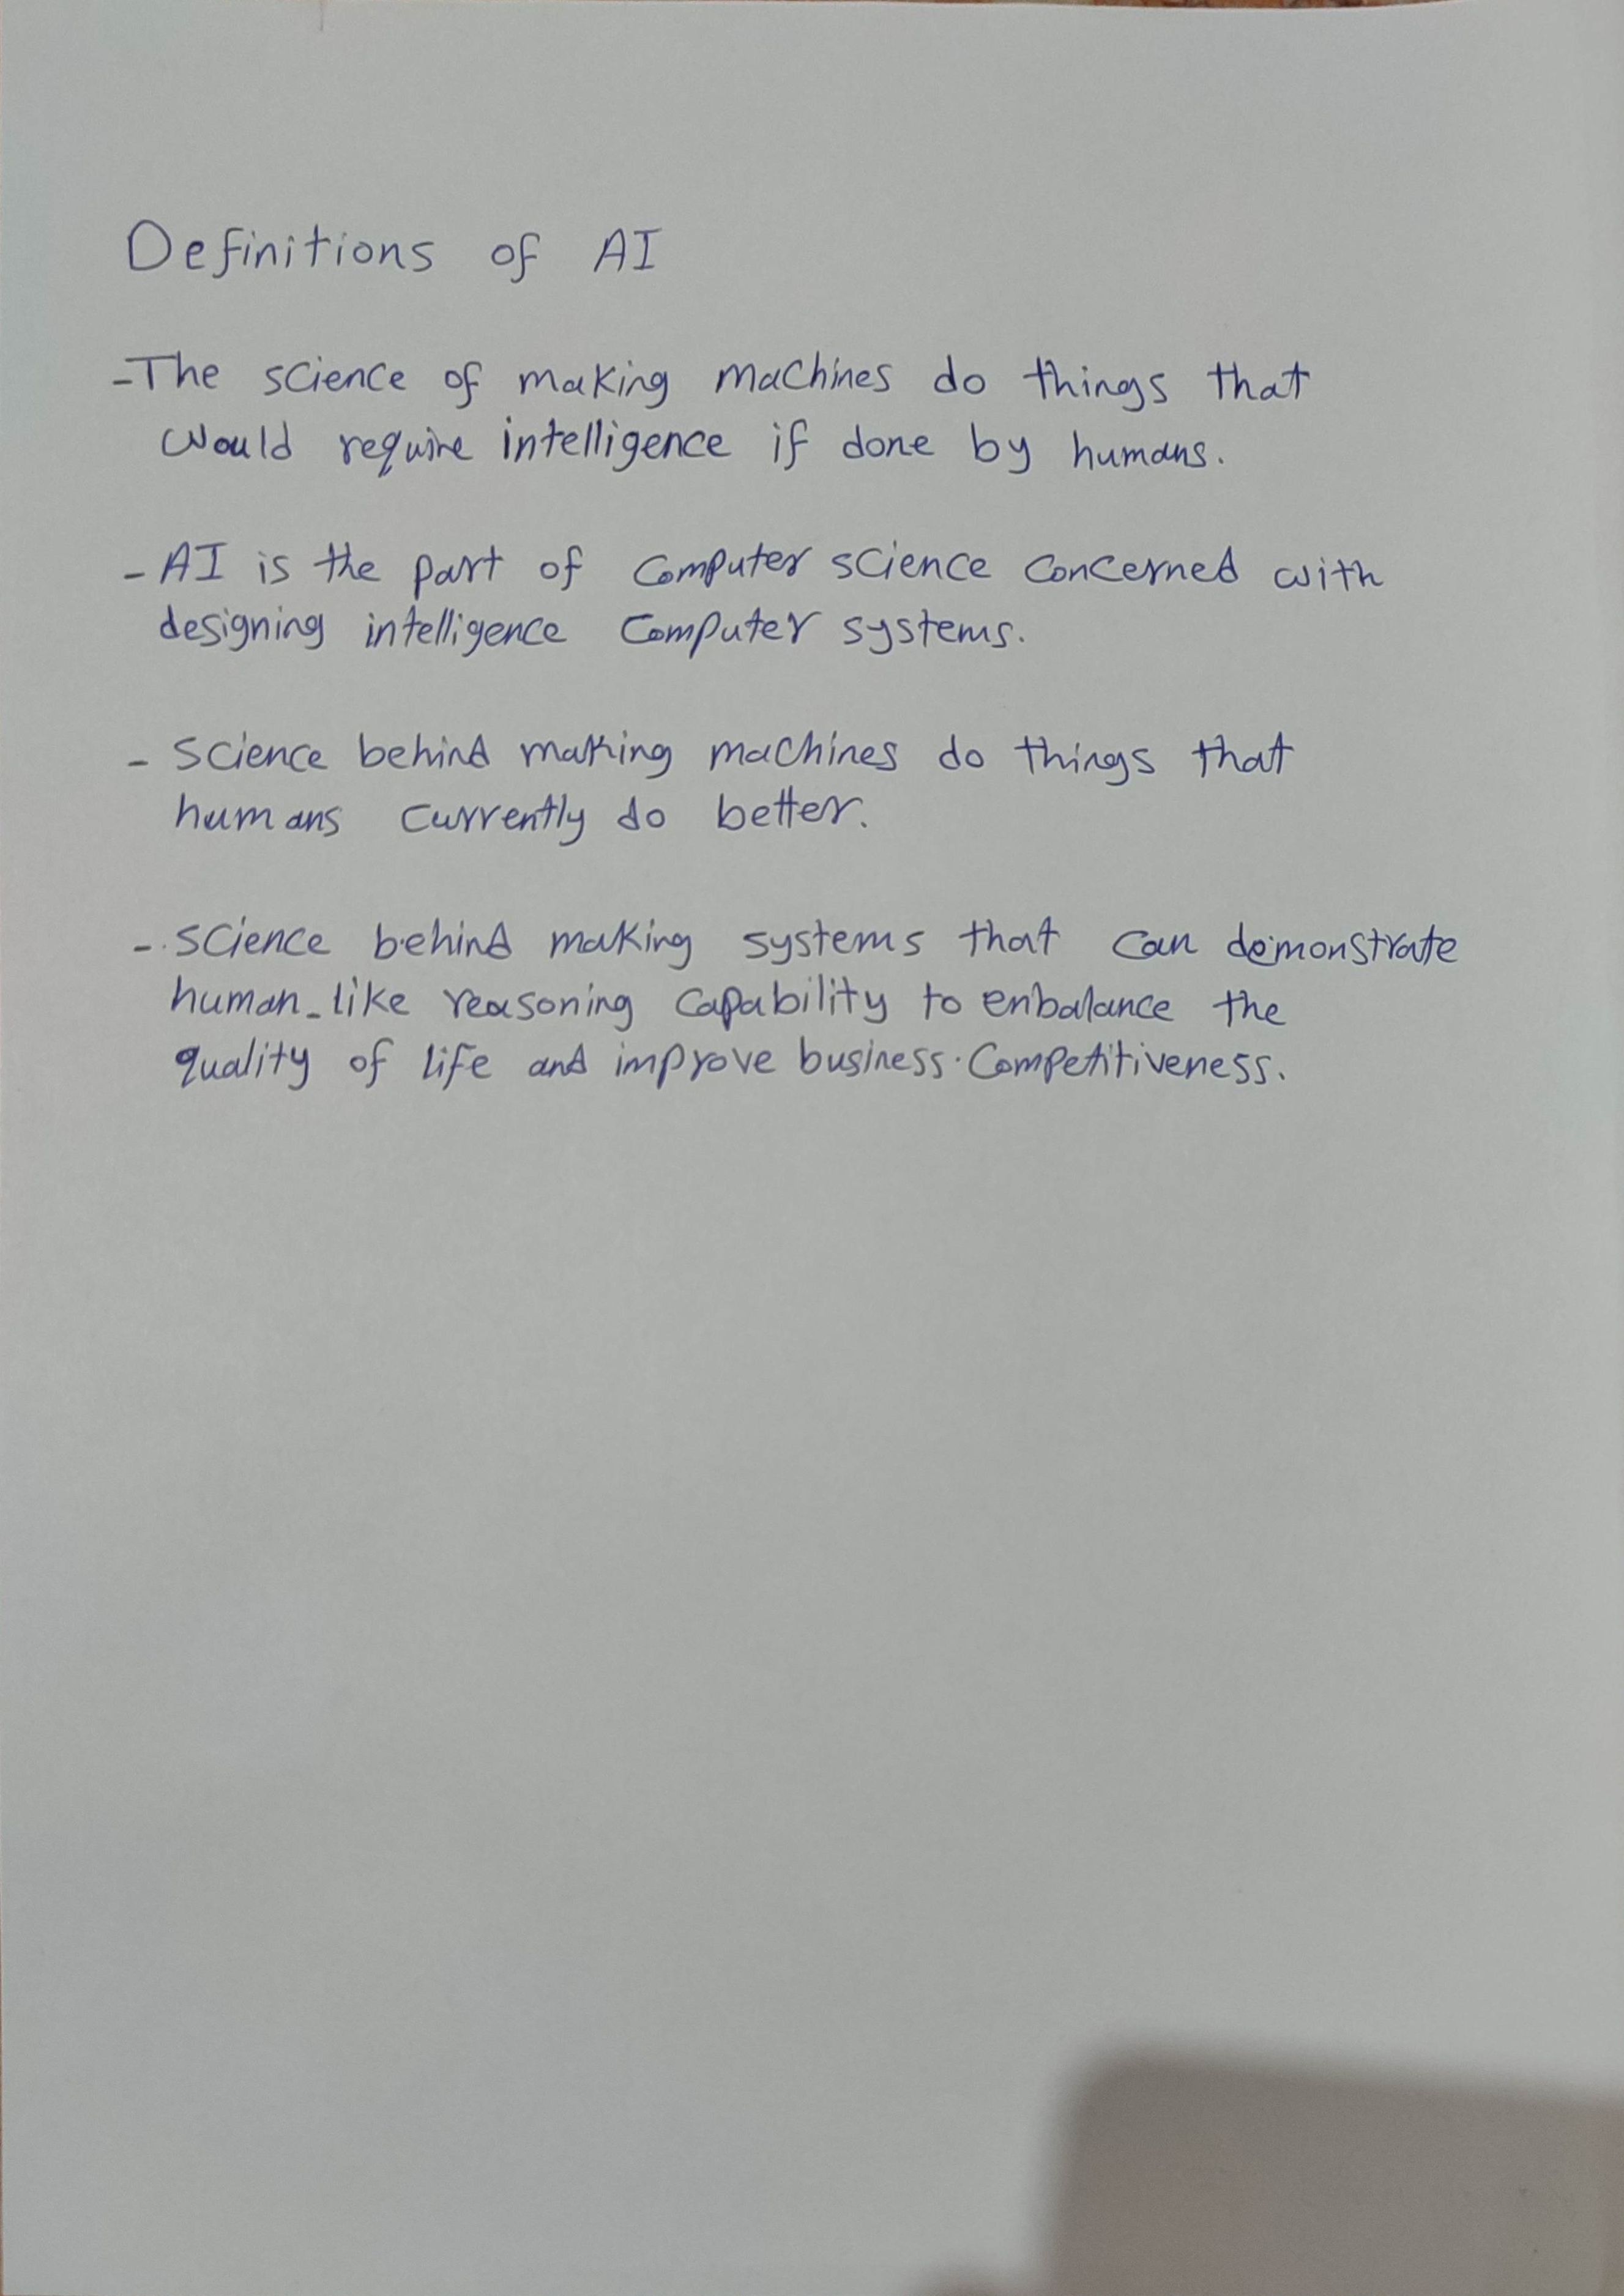 Definitions of AI
-The science of making machines do things that
would require intelligence if done by humans.
- AI is the part of computer science concerned with
designing intelligence computer systems.
- science behind making machines do things that
humans currently do better.
- science behind making systems that can demonstrate
human-like reasoning capability to enbalance the
quality of life and improve business competitiveness.